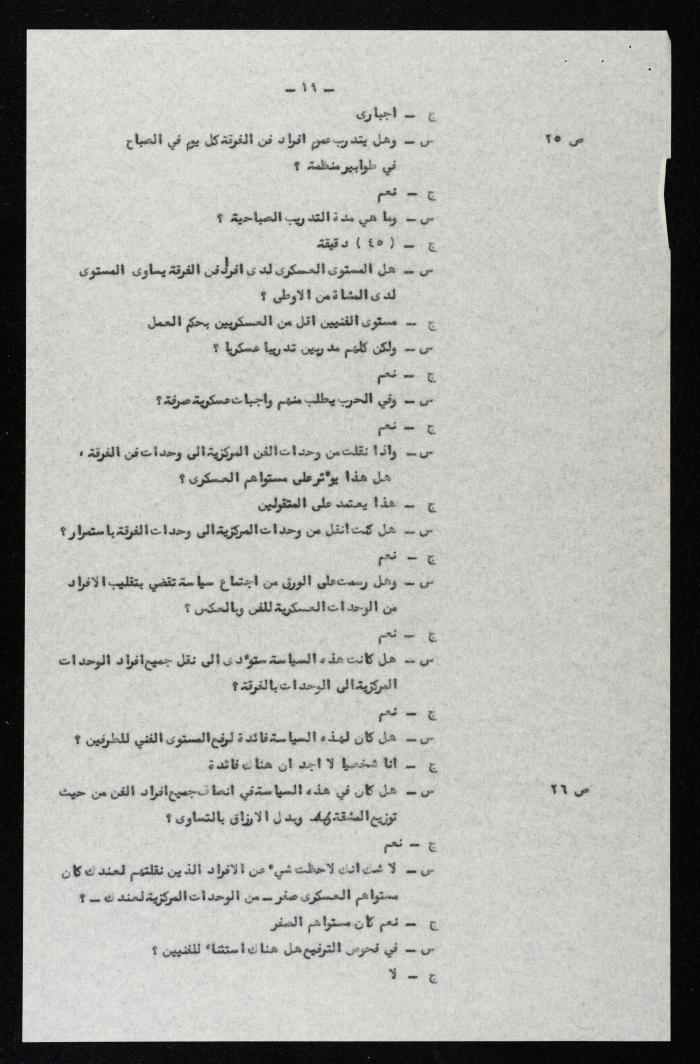 – ١٩ –
ج – اجبارى
ص ٢٥ س – وهل يتدرب عموم افراد فن الفرقة كل يوم في الصباح
في طوابير منظمة ؟
ج – نعم
س – وما هي مدة التدريب الصباحية ؟
ج – ( ٤٥ ) دقيقة
س – هل المستوى العسكرى لدى افراد فن الفرقة يساوى المستوى
لدى المشاة من الاوطى ؟
ج – مستوى الفنيين اقل من العسكريين بحكم العمل
س – ولكن كلهم مدربين تدريبا عسكريا ؟
ج – نعم
س – وفي الحرب يطلب منهم واجبات عسكرية صرفة؟
ج – نعم
س – واذا نقلت من وحدات الفن المركزية الى وحدات فن الفرقة ،
هل هذا يوٴثر على مستواهم العسكرى ؟
ج – هذا يعتمد على المنقولين
س – هل كنت انقل من وحدات المركزية الى وحدات الفرقة باستمرار؟
ج – نعم
س – وهل رسمت على الورق من اجتماع سياسة تقضي بتقليب الافراد
من الوحدات العسكرية للفن وبالعكس ؟
ج – نعم
س – هل كانت هذه السياسة ستوٴدى الى نقل جميع افراد الوحدات
المركزية الى الوحدات بالفرقة؟
ج – نعم
س – هل كان لهذه السياسة فائدة لرفع المستوى الفني للطرفين ؟
ج – انا شخصيا لا اجد ان هناك فائدة
ص ٢٦ س – هل كان في هذه السياسة في انصاف جميع افراد الفن من حيث
توزيع المشقة وبدل الارزاق بالتساوى ؟
ج – نعم
س – لا شك انك لاحظت شيء عن الافراد الذين نقلتهم لعندك كان
مستواهم العسكرى صفر – من الوحدات المركزية لعندك – ؟
ج – نعم كان مستواهم الصفر
س – في فحوص الترفيع هل هناك استثناء للفنيين ؟
ج – لا